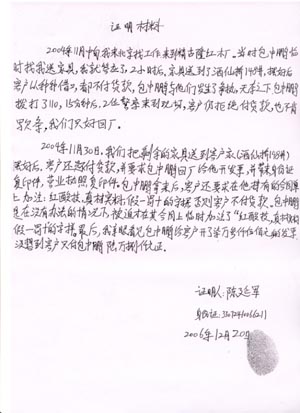 证明材料
2004年11月中旬我来北京找工作来到精古隆红木厂。当时包中鹏临
时找我送家具,我就答应了,2小时后,家具送到了酒仙桥14号楼,摆好后
客户以种种借口,都不付货款,包中鹏与他们发生了争执,无奈之下包中鹏
拨打了110,15分钟后,2位警察来到现场,客户仍拒绝付货款,也不肯
写欠条,我们只好回厂。
2004年11月30日,我们把剩余的家具送到客户家(酒仙桥14号楼)
摆好后,客户还拒付货款,并要求包中鹏回厂给他开发票,并带来身份证
复印件,营业执照复印件。包中鹏拿来后,客户还要求在他才有的合同单
上加上:红酸枝,真材实料,假一罚十的字据,否则客户不付货款。包中鹏
是在没有办法的情况下,被逼才在其合同上临时加上了“红酸枝,真材实料
假一罚十的字据。最后,我亲眼看见包中鹏给客户开了
没想到客户只付包中鹏陆万捌仟元正。
证明人:陈廷军
身份证:
2006年12月20日